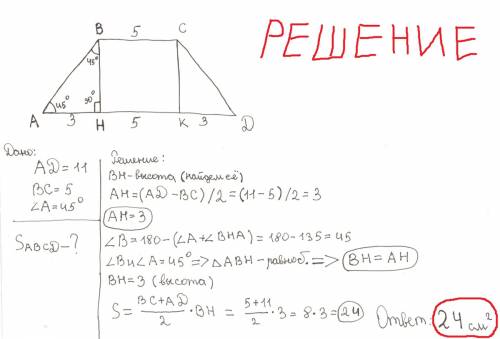 РЕШЕНИЕ
5
B
C
45°
45°
90°
A
3
H
5
K
3
D
Дано:
AD=11
BC=5
∠A=45°
SABCD-?
Решение:
BH-высота (найдем её)
AH=(AD-BC)/2=(11-5)/2=3
AH=3
∠B=180-(∠A+∠BHA)=180-135=45
∠B и ∠A=45°=>△ABH-равноб.=> BH=AH
BH=3 (высота)
S= BC+AD/2 ·BH = 5+11/2 ·3=8·3=24
Ответ: 24 см²